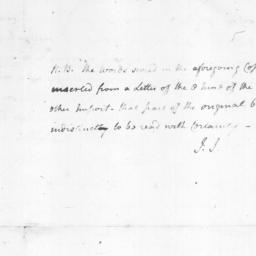 N. B. The words scored in the aforegoing Co
inserted from a Letter of the 2 Inst of the
other Import. that part of the original b
indistinct to be read with Certainty —
J. J.